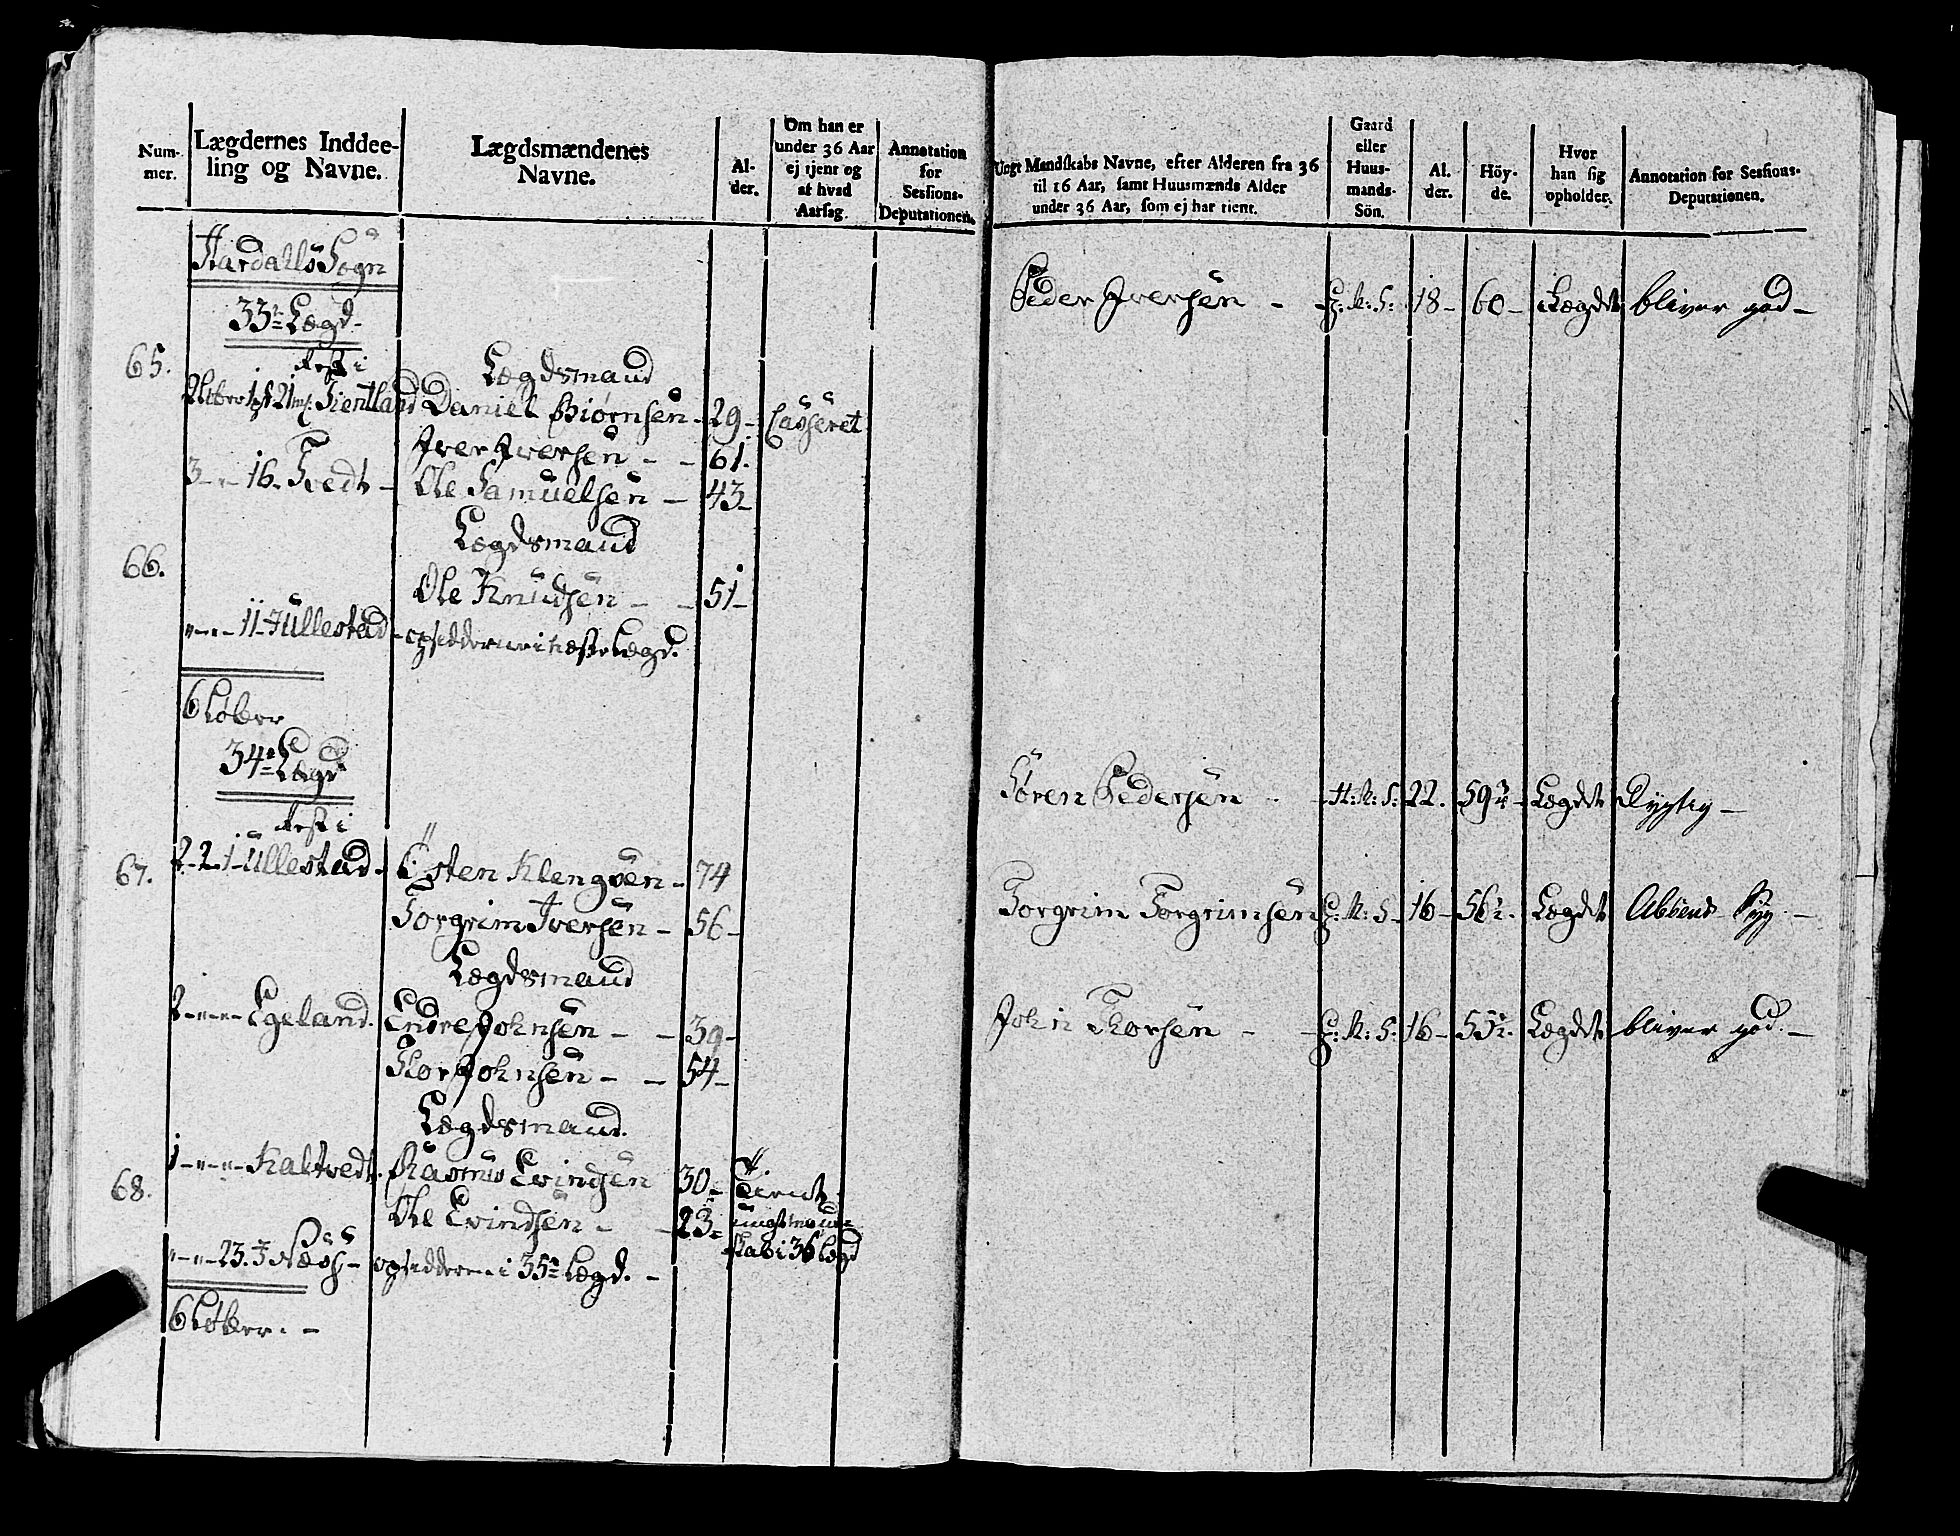 Num-
mer.
Lægdernes Inddee-
ling og Navne.
Lægdsmændenes
Navne.
Al-
der.
Om han er
under 36 Aar
ej tjent og
at hvad
Aarsag.
Annotation
for
Sessions-
Deputationen.
Hardahls Sogn
33te Lægd.
Rest i
65.
Lægdsmand
Daniel Biørnsen - 29 - Casseret
Iver Iversen - - 61.
3 - " - 16 - Tvedt - Ole Samuelsen - 43 -
Lægdsmand
66.
Ole Knudsen - - 51 -
" - " - 11 - Jullestad - opsidderne i næste Lægd.
6 Løber
34te Lægd
Rest i
67. 2 - 2 - 1 - Ullestad - Østen Klengsen - 74
Torgrim Iversen - 56 -
Lægdsmand
2 - " - " - Egeland. Endre Johnsen - - 39 -
Thor Johnsen - - 54 -
Lægdsmand.
68. 1 - " - " - Kaltvedt. Rasmus Evindsen 30 - Tient
Ole Evindsen - - 23 - ungt mand-
skab i 36 Lægd
" - " - 23. I Næss - opsidderne i 35te Lægd. -
6 Løber. -
Ungt Mandskabs Navne, efter Alderen fra 36
til 16 Aar, samt Huusmænds Alder
under 36 Aar, som ej har tient.
Gaard
eller
Huus-
mands-
Sön.
Al.
der.
Höy-
de.
Hvor
han sig
opholder.
Annotation for Sessions-
Deputationen.
Peder Iversen - G: M: S: 18 - 60 - Lægdet bliver god -
Søren Pedersen - H: M: S: 22. 59 1/2 - Lægdet Dygtig -
Torgrim Torgrimsen G: M: S - 16 - 56 1/2. Lægdet Absens Syg. -
John Thorsen - - G: M: S: 16 - 55 1/2. Lægdet bliver god. -